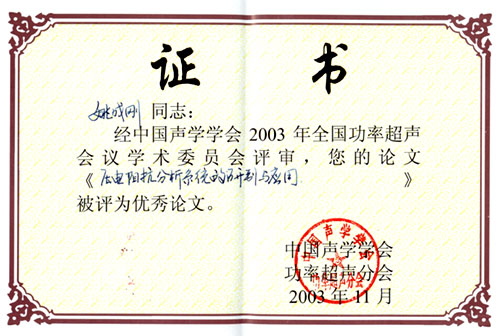 证书
姚成刚 同志：
经中国声学学会2003年全国功率超声
会议学术委员会评审，您的论文
《压电阻抗分析系统的研制与应用》
被评为优秀论文。
中国声学学会
功率超声分会
2003年11月
中国声学学会
功率超声分会